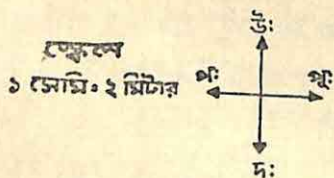 স্কেল
১ সেমি = ২ মিটার
উঃ
পঃ
পূঃ
দঃ